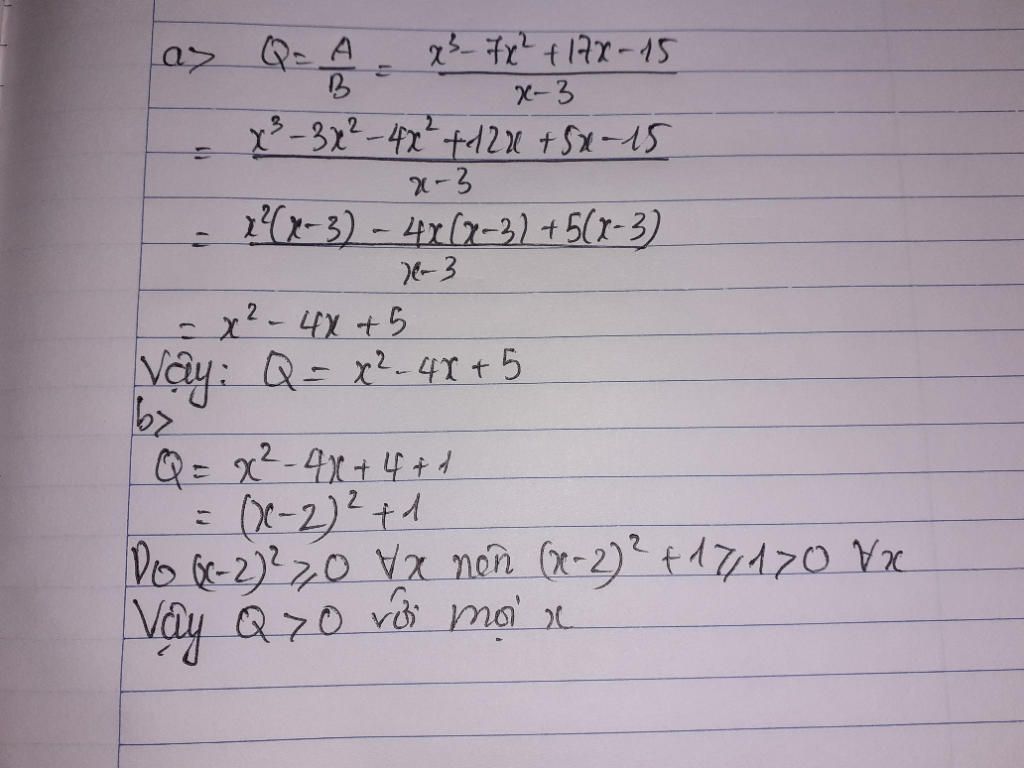 a> Q = A/B = (x³ - 7x² + 17x - 15)/(x - 3)
= (x³ - 3x² - 4x² + 12x + 5x - 15)/(x - 3)
= (x²(x-3) - 4x(x-3) + 5(x-3))/(x-3)
= x² - 4x + 5
Vậy: Q = x² - 4x + 5
b>
Q = x² - 4x + 4 + 1
= (x-2)² + 1
Do (x-2)² ⩾ 0 ∀x nên (x-2)² + 1 ⩾ 1 > 0 ∀x
Vậy Q > 0 với mọi x